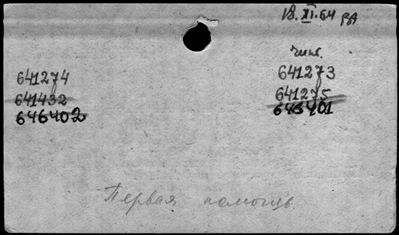 18.XI.64
641274
641432
646402
641273
641275
643401
Первая помощь